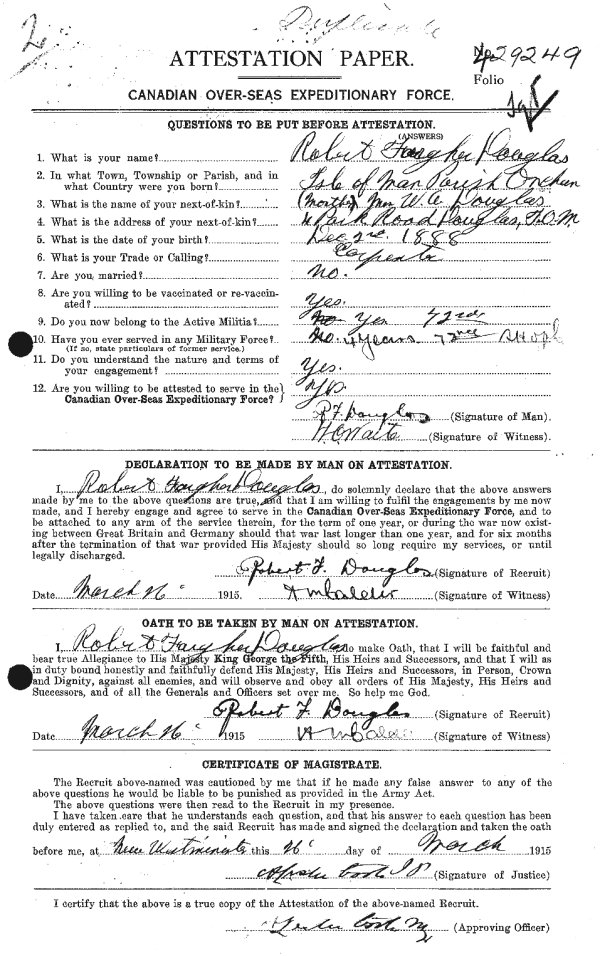 Duplicate
2
ATTESTATION PAPER.
No. 29249
Folio
CANADIAN OVER-SEAS EXPEDITIONARY FORCE.
QUESTIONS TO BE PUT BEFORE ATTESTATION.
(ANSWERS)
1. What is your name? Robert Faragher Douglas
2. In what Town, Township or Parish, and in
what Country were you born? Isle of Man Parish Onchan
3. What is the name of your next-of-kin? (Mother) Mrs W. A. Douglas
4. What is the address of your next-of-kin? 4 Park Road Douglas, I.O.M
5. What is the date of your birth? Dec 2nd 1888
6. What is your Trade or Calling? Carpenter
7. Are you married? No.
8. Are you willing to be vaccinated or re-vaccin-
ated? Yes.
9. Do you now belong to the Active Militia? No Yes 72nd
10. Have you ever served in any Military Force? No. 4 Years 72nd
(If so, state particulars of former service.)
11. Do you understand the nature and terms of
your engagement? Yes.
12. Are you willing to be attested to serve in the
Canadian Over-Seas Expeditionary Force? Yes
R F Douglas (Signature of Man).
(Signature of Witness).
DECLARATION TO BE MADE BY MAN ON ATTESTATION.
I, Robert Faragher Douglas, do solemnly declare that the above answers
made by me to the above questions are true, and that I am willing to fulfil the engagements by me now
made, and I hereby engage and agree to serve in the Canadian Over-Seas Expeditionary Force, and to
be attached to any arm of the service therein, for the term of one year, or during the war now exist-
ing between Great Britain and Germany should that war last longer than one year, and for six months
after the termination of that war provided His Majesty should so long require my services, or until
legally discharged.
Robert F. Douglas (Signature of Recruit)
Date March 26 1915. (Signature of Witness)
OATH TO BE TAKEN BY MAN ON ATTESTATION.
I, Robert Faragher Douglas, do make Oath, that I will be faithful and
bear true Allegiance to His Majesty King George the Fifth, His Heirs and Successors, and that I will as
in duty bound honestly and faithfully defend His Majesty, His Heirs and Successors, in Person, Crown
and Dignity, against all enemies, and will observe and obey all orders of His Majesty, His Heirs and
Successors, and of all the Generals and Officers set over me. So help me God.
Robert F. Douglas (Signature of Recruit)
Date March 26 1915 (Signature of Witness)
CERTIFICATE OF MAGISTRATE.
The Recruit above-named was cautioned by me that if he made any false answer to any of the
above questions he would be liable to be punished as provided in the Army Act.
The above questions were then read to the Recruit in my presence.
I have taken care that he understands each question, and that his answer to each question has been
duly entered as replied to, and the said Recruit has made and signed the declaration and taken the oath
before me, at New Westminster this 26 day of March 1915
(Signature of Justice)
I certify that the above is a true copy of the Attestation of the above-named Recruit.
(Approving Officer)